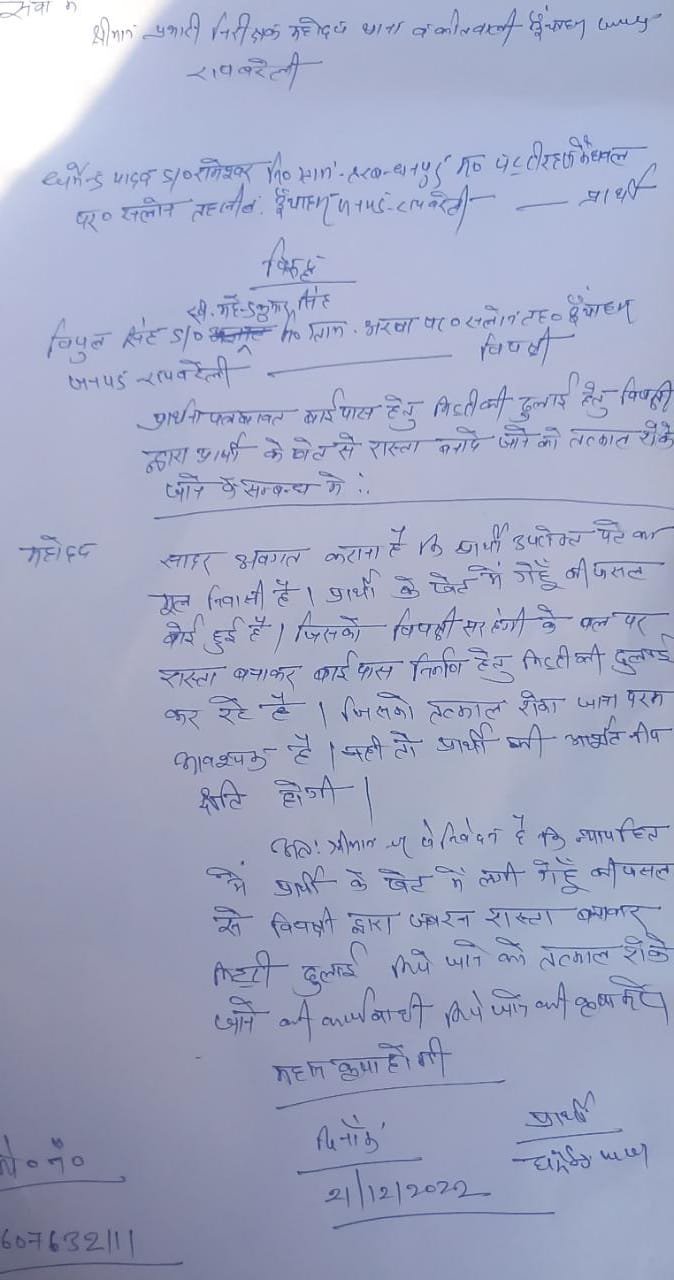 सेवा में
श्रीमान प्रभारी निरीक्षक महोदय थाना व कोतवाली
रायबरेली
यादव S/O रामेश्वर नि० ग्राम
पर० सलोन तहसील जनपद-रायबरेली — प्रार्थी
विरुद्ध
सिंह
विपुल सिंह S/O नि० ग्राम. अरवा पर० सलोन तह०
जनपद रायबरेली — विपक्षी
प्रार्थना पत्र बावत बाईपास हेतु मिट्टी की ढुलाई हेतु विपक्षी
द्वारा प्रार्थी के खेत से रास्ता बनाये जाने को तत्काल रोके
जाने के सम्बन्ध में :.
महोदय
सादर अवगत कराना है कि प्रार्थी उपरोक्त पते का
मूल निवासी है। प्रार्थी के खेत में गेहूँ की फसल
बोई हुई है। जिसको विपक्षी सरहंगी के बल पर
रास्ता बनाकर बाईपास निर्माण हेतु मिट्टी की ढुलाई
कर रहे है। जिसको तत्काल रोका जाना परम
आवश्यक है। नही तो प्रार्थी की
क्षति होगी।
अतः श्रीमान जी से निवेदन है कि न्यायहित
में प्रार्थी के खेत में लगी गेहूँ की फसल
से विपक्षी द्वारा जबरन रास्ता बनाकर
मिट्टी ढुलाई किये जाने को तत्काल रोके
जाने की कार्यवाही किये जाने की कृपा करें।
महान कृपा होगी
दिनाँक प्रार्थी
21/12/2022
मो० नं०
607632111